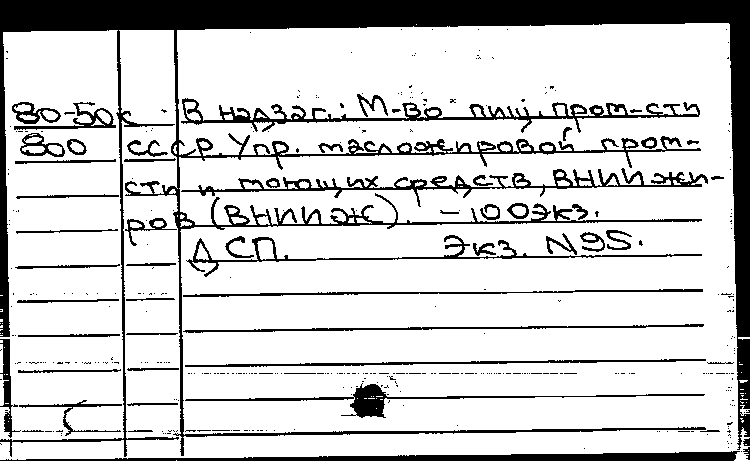 80-50к В надзаг.: М-во пищ. пром-сти
800 СССР. Упр. масложировой пром-
сти и моющих средств, ВНИИ жи-
ров (ВНИИЖ). - 100экз.
ДСП. Экз. N95.